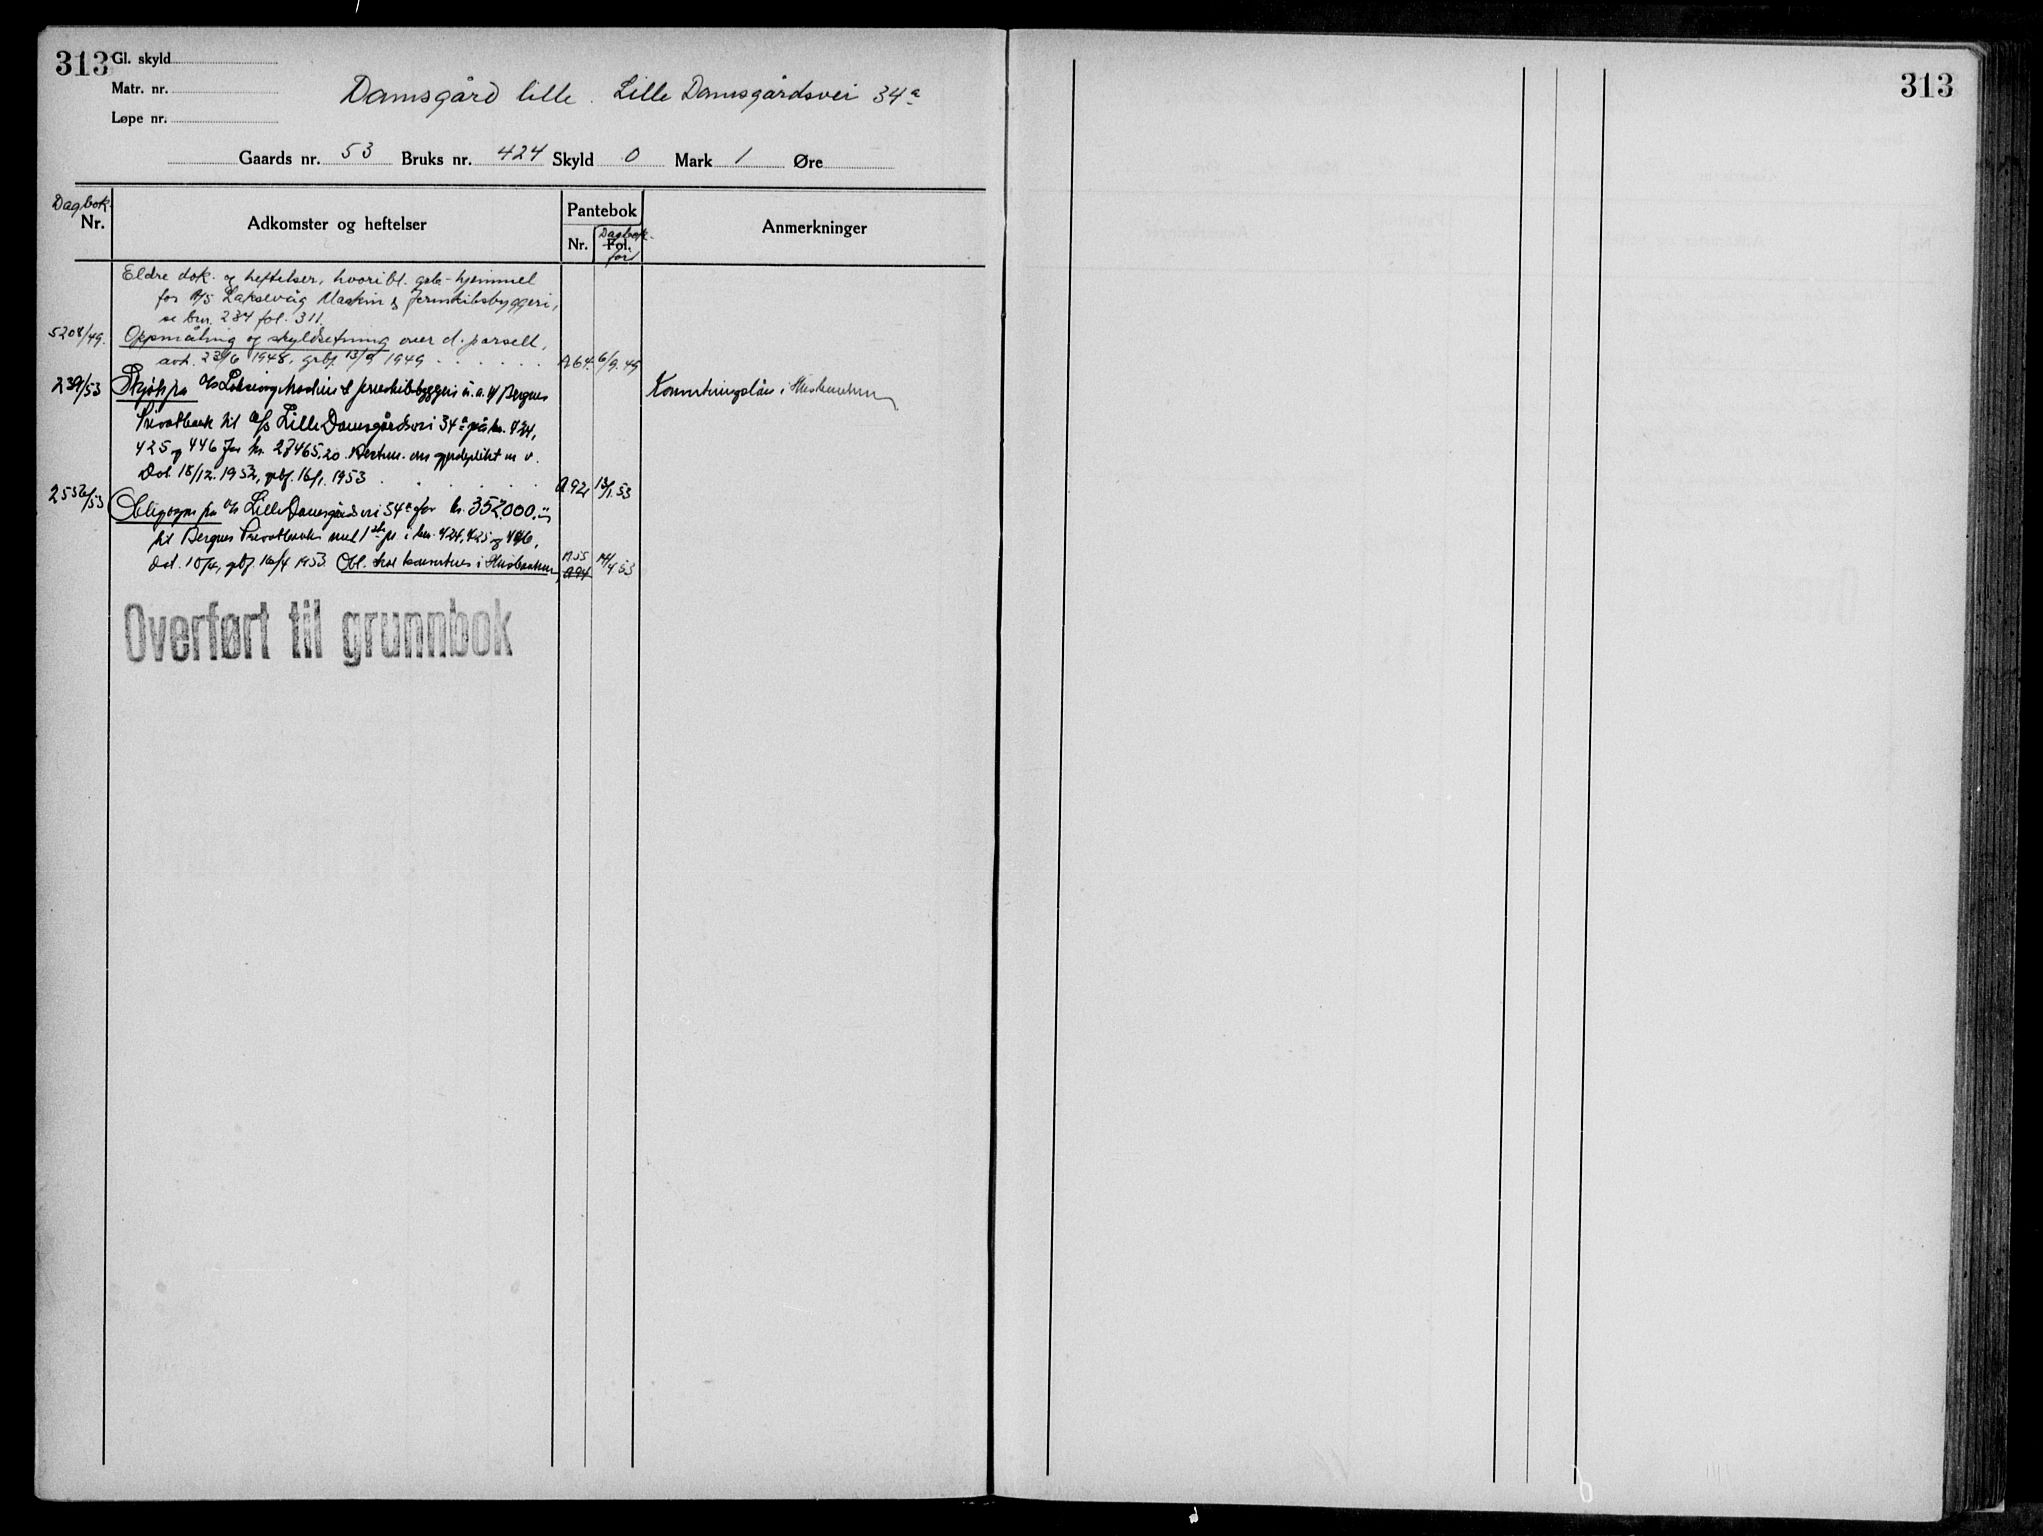 313 Gl. skyld
Matr. nr.
Løpe nr.
Damsgård lille. Lille Damsgårdsvei 34a
Gaards nr. 53 Bruks nr. 424 Skyld 0 Mark 1 Øre
313
Dagbok
Nr.
Adkomster og heftelser
Pantebok
Nr.
Dagbok
Fol.
for
Anmerkninger
Eldre dok. og heftelser, hvoribl. grb-hjemmel
for A/S Laksevåg Maskin & Jernskibsbyggeri,
se bnr. 284 fol. 311.
5208/49. Oppmåling og skyldsetning over d. parsell,
avh. 23/6 1948, grbf. 13/9 1949 A 64. 6/9.49
239/53 Skjøte fra A/S Laksevåg Maskin & Jernskibbyggeri m. a. Bergens Konverteringslån i Husbanken
Privatbank til A/S Lille Damsgårdsvei 34a på bnr. 424,
425 og 446 for kr. 27465,20. Bestem. om gjerdeplikt m v.
Dat. 18/12. 1952, grbf. 16/1. 1953 A 92 13/1.53
2556/53 Obligasjon fra A/S Lille Damsgårdsvei 34a for kr. 352.000.
til Bergens Privatbank med 1ste pr. i bnr. 424, 425 og 446,
dat. 10/4, grbf. 16/4 1953. Obl. skal konverteres i Husbanken A 94 14/4 53
Overført til grunnbok